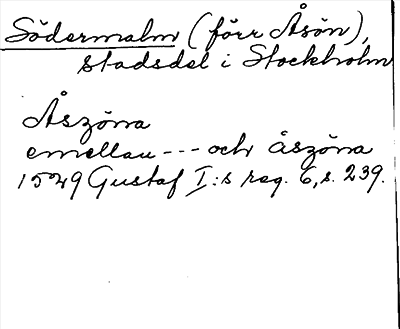 Södermalm (förr Åsön),
stadsdel i Stockholm
Åszöna
emellan --- och åszöna
1549 Gustaf I:s reg. 6, s. 239.